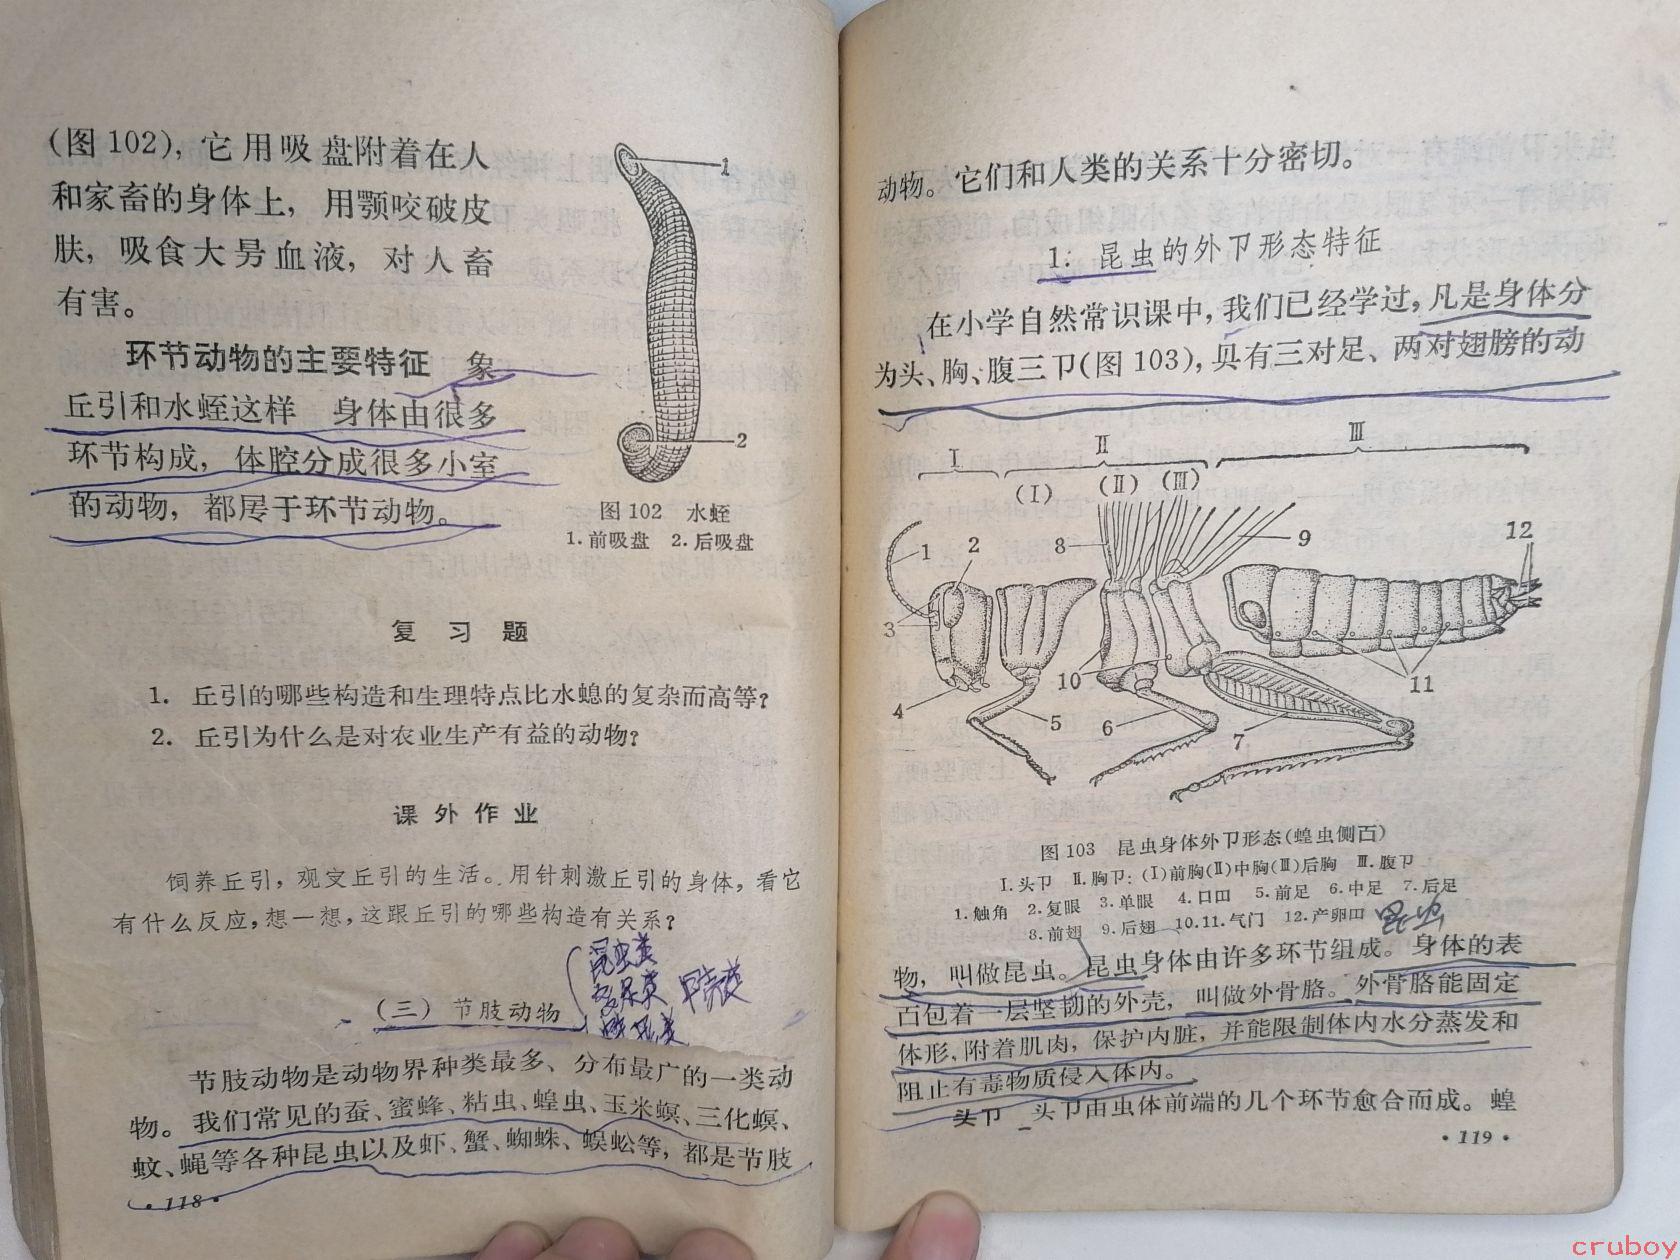 (图 102), 它用吸盘附着在人
和家畜的身体上, 用颚咬破皮
肤, 吸食大血液, 对人畜
有害。
环节动物的主要特征 象
丘引和水蛭这样 身体由很多
环节构成, 体腔分成很多小室
的动物, 都于环节动物。
1
2
图 102 水蛭
1.前吸盘 2.后吸盘
复 习 题
1. 丘引的哪些构造和生理特点比水螅的复杂而高等?
2. 丘引为什么是对农业生产有益的动物?
课 外 作 业
饲养丘引, 观丘引的生活。用针刺激丘引的身体, 看它
有什么反应, 想一想, 这跟丘引的哪些构造有关系?
昆虫类
甲壳类
(三) 节肢动物
节肢动物是动物界种类最多、分布最广的一类动
物。我们常见的蚕、蜜蜂、粘虫、蝗虫、玉米螟、三化螟、
蚊、蝇等各种昆虫以及虾、蟹、蜘蛛、蜈蚣等, 都是节肢
·118·
动物。它们和人类的关系十分密切。
1. 昆虫的外卩形态特征
在小学自然常识课中, 我们已经学过, 凡是身体分
为头、胸、腹三卩(图 103), 具有三对足、两对翅膀的动
I II III
(I) (II) (III)
1 2 8 9 12
3
10 11
4 5 6 7
图 103 昆虫身体外卩形态(蝗虫侧百)
I.头卩 II.胸卩: (I)前胸(II)中胸(III)后胸 III.腹卩
1.触角 2.复眼 3.单眼 4.口 5.前足 6.中足 7.后足
8.前翅 9.后翅 10.11.气门 12.产卵
昆虫
物, 叫做昆虫。昆虫身体由许多环节组成。身体的表
百包着一层坚韧的外壳, 叫做外骨胳。外骨胳能固定
体形, 附着肌肉, 保护内脏, 并能限制体内水分蒸发和
阻止有毒物质侵入体内。
头卩 头卩由虫体前端的几个环节愈合而成。蝗
·119·
cruboy